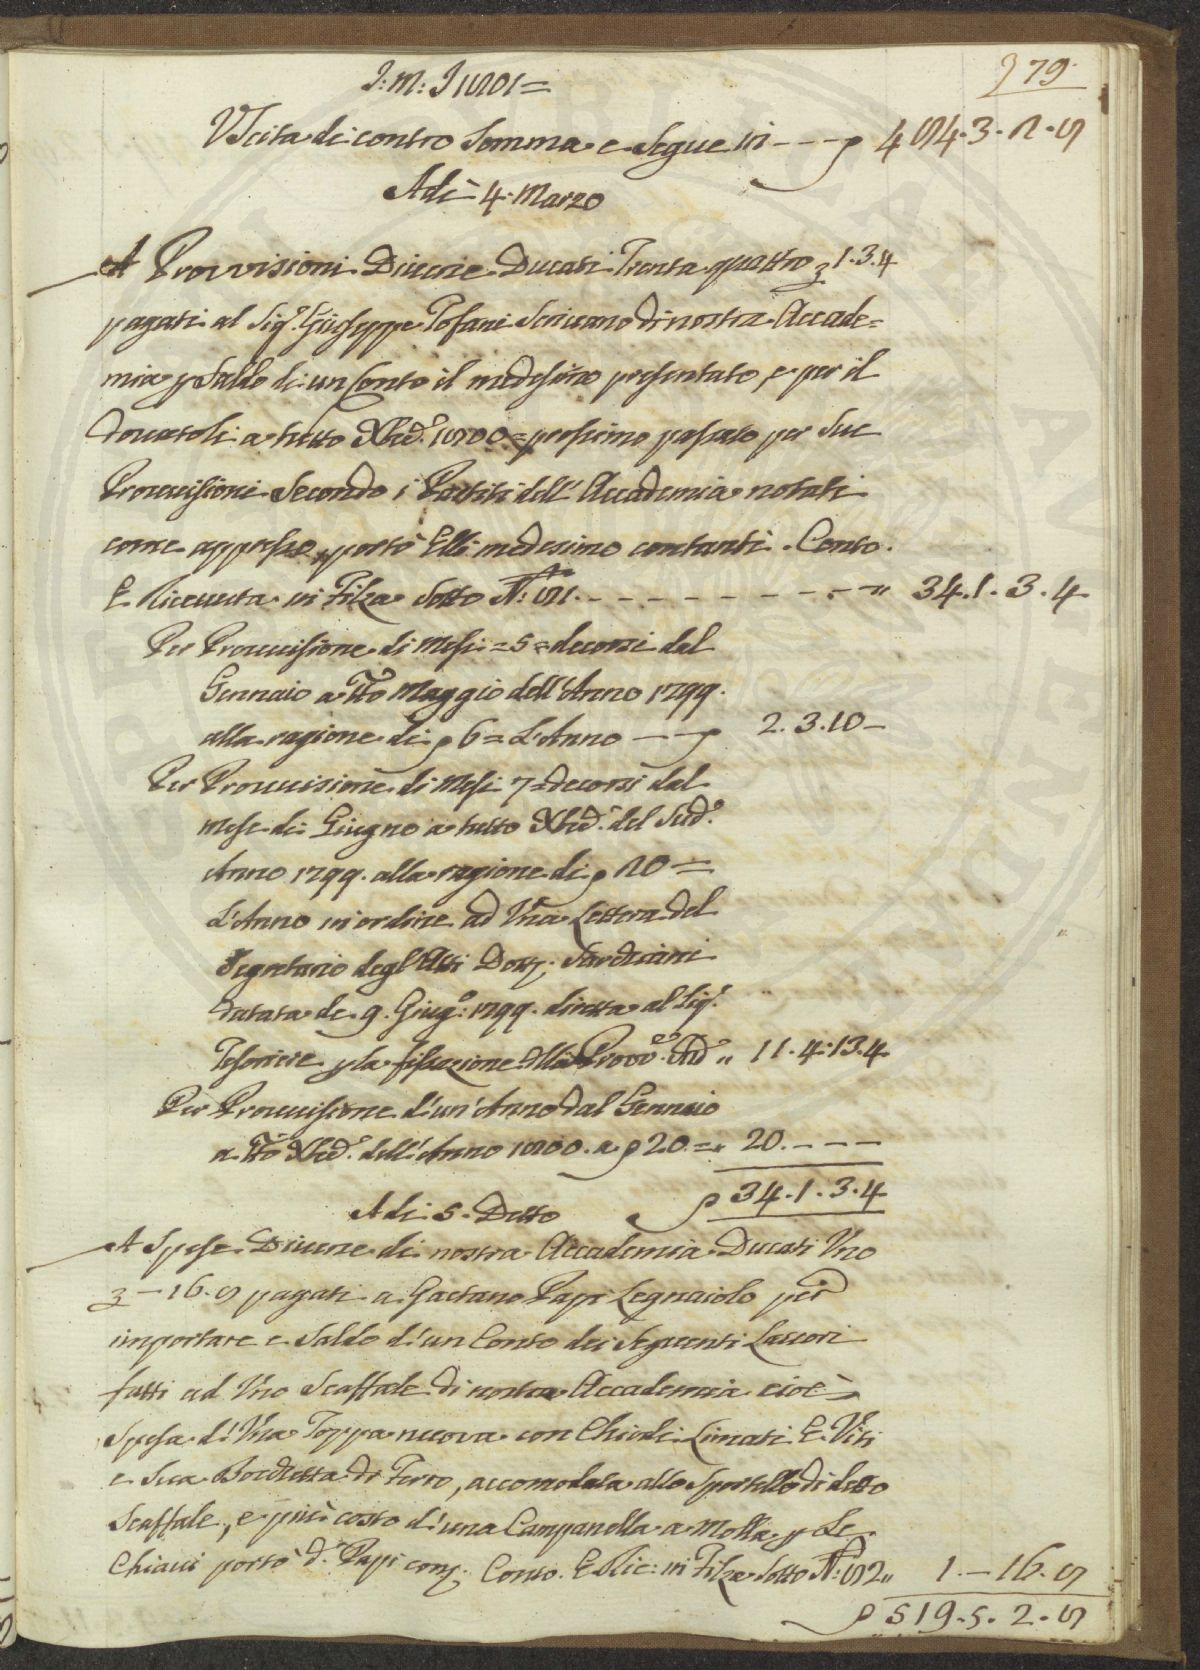 J: M: J 1801 =
379
Uscita di contro Somma e Segue in - - - ρ 484. 3. 2. 8
Adi 4. Marzo
A Provvisioni Diverse Ducati Trenta quattro 3 1. 3. 4
pagati al Sig.r Giuseppe Tofani Scrivano di nostra Accade=
mia p Saldo di un Conto il medesimo presentato, e per il
dovutoli a tutto Xbre. 1800 = prossimo passato per Sue
Provvisioni Secondo i Partiti dell' Accademia notati
come appresso, portò Elli medesimo contanti. Conto.
E Ricevuta in Filza Sotto N.: 81. - - - - - - - - - " 34. 1. 3. 4
Per Provvisione di Mesi = 5 = decorsi dal
Gennaio a Tto Maggio dell' Anno 1799.
alla ragione di ρ 6 = L'Anno - - - ρ 2. 3. 10 -
Per Provvisione di Mesi 7 = decorsi dal
Mese di Giugno a tutto Xbre. del Sud.o
Anno 1799. alla ragione di ρ 20 =
L'Anno in ordine ad Una Lettera del
Segretario degl' Atti Dott;
datata de 9. Giug.o: 1799. diretta al Sig.r
Tesoriere p la fissazione della Provv.e " 11. 4. 13. 4
Per Provvisione d'un' Anno dal Gennaio
a Tto Xbre. dell' Anno 1800. a ρ 20. = " 20. - - -
ρ 34. 1. 3. 4
Adi 5. Detto
A Spese Diverse di nostra Accademia Ducati Uno
3 - 16. 8 pagati a Gaetano Papi Legnaiolo per
importare e Saldo d'un Conto dei Seguenti Lavori
fatti ad Uno Scaffale di nostra Accademia cioè
Spesa d'Una Toppa nuova con Chiodi Limati E Viti
e Sua Bocchetta di Ferro, accomodata allo Sportello di detto
Scaffale, e più costo d'una Campanella a Molla p Le
Chiavi portò d.o Papi con; Conto. E Ric: in Filza Sotto N.: 82 " 1. - 16. 8
ρ 519. 5. 2. 8